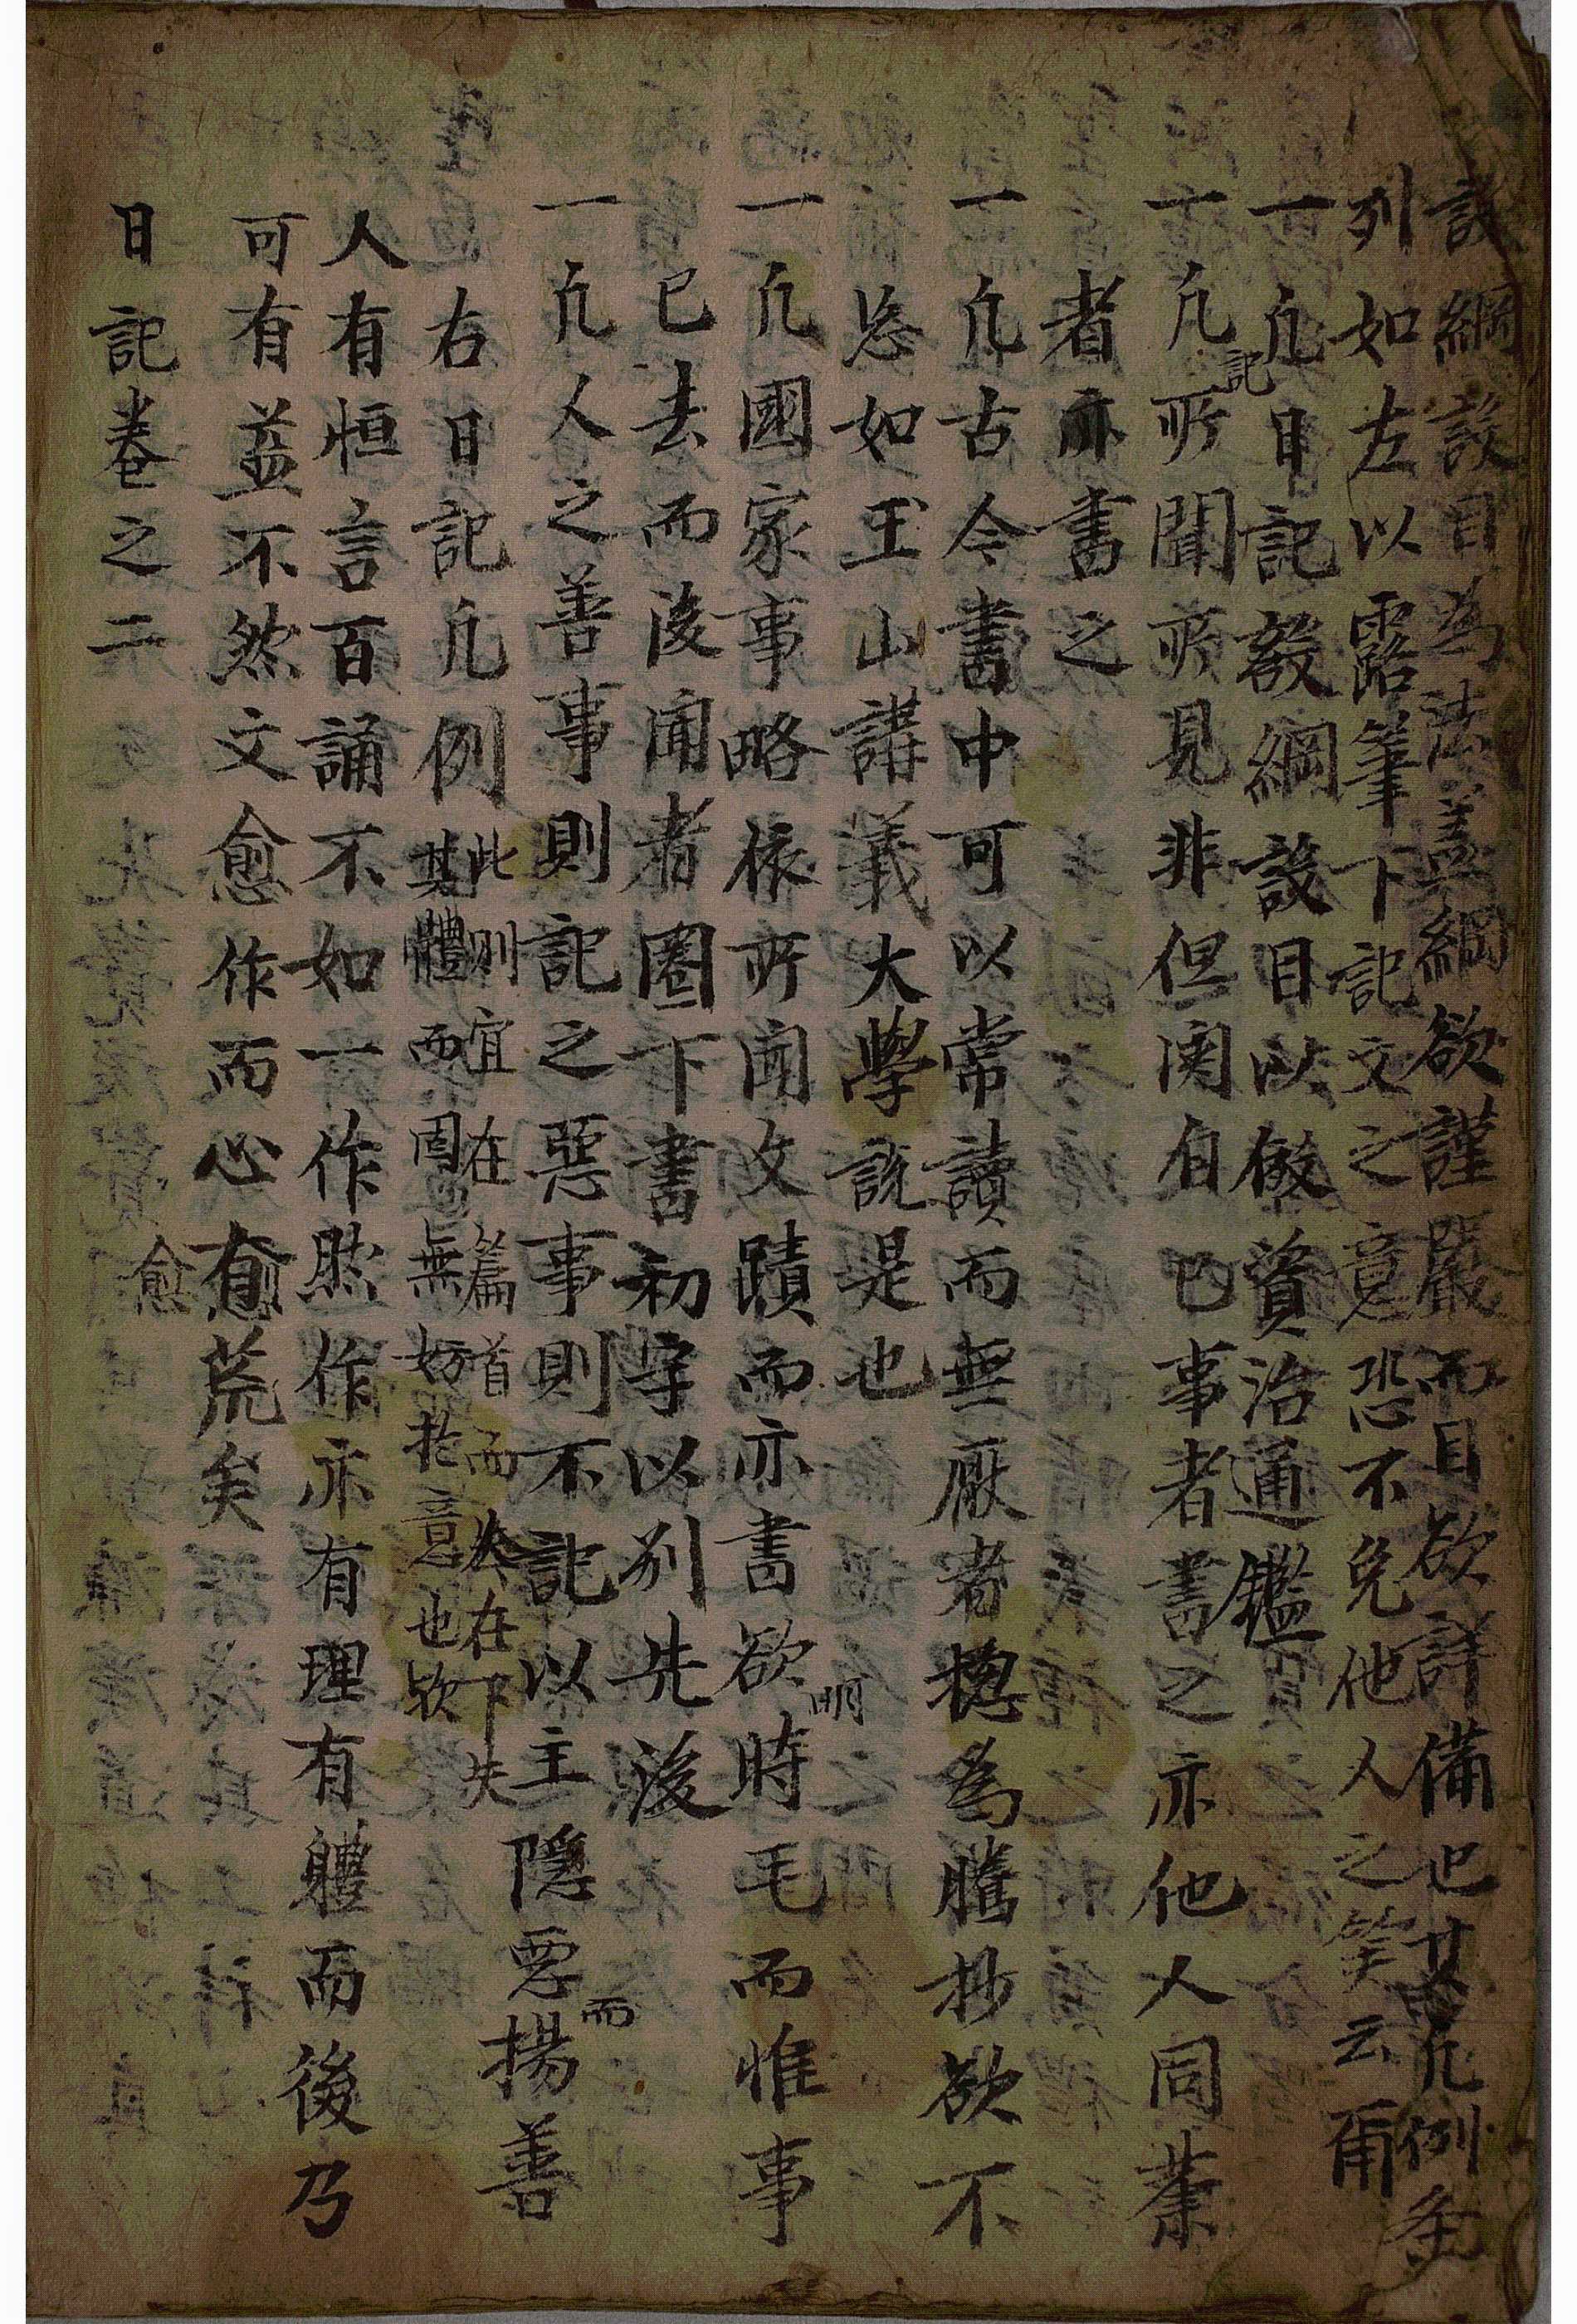 設綱設目爲法盖綱欲謹嚴而目欲詳備也其凡例条
列如左以露筆下記文之意恐不免他人之笑云爾
一凡日記設綱設目以倣資治通鑑
一凡記所聞所見非但関自己事者書之亦他人同業
者亦書之
一凡古今書中可以常讀而無厭者揔爲謄抄欲不
忘如玉山講義大學說是也
一凡國家事略依所聞文蹟而亦書欲明時毛而惟事
已去而後聞者圈下書初字以別先後
一凡人之善事則記之惡事則不記以主隱惡而揚善
右日記凡例
此則宜在篇首而今在下失
其體而固無妨於意也歟
人有恒言百誦不如一作然作亦有理有軆而後乃
可有益不然文愈作而心愈荒矣
愈
日記卷之二